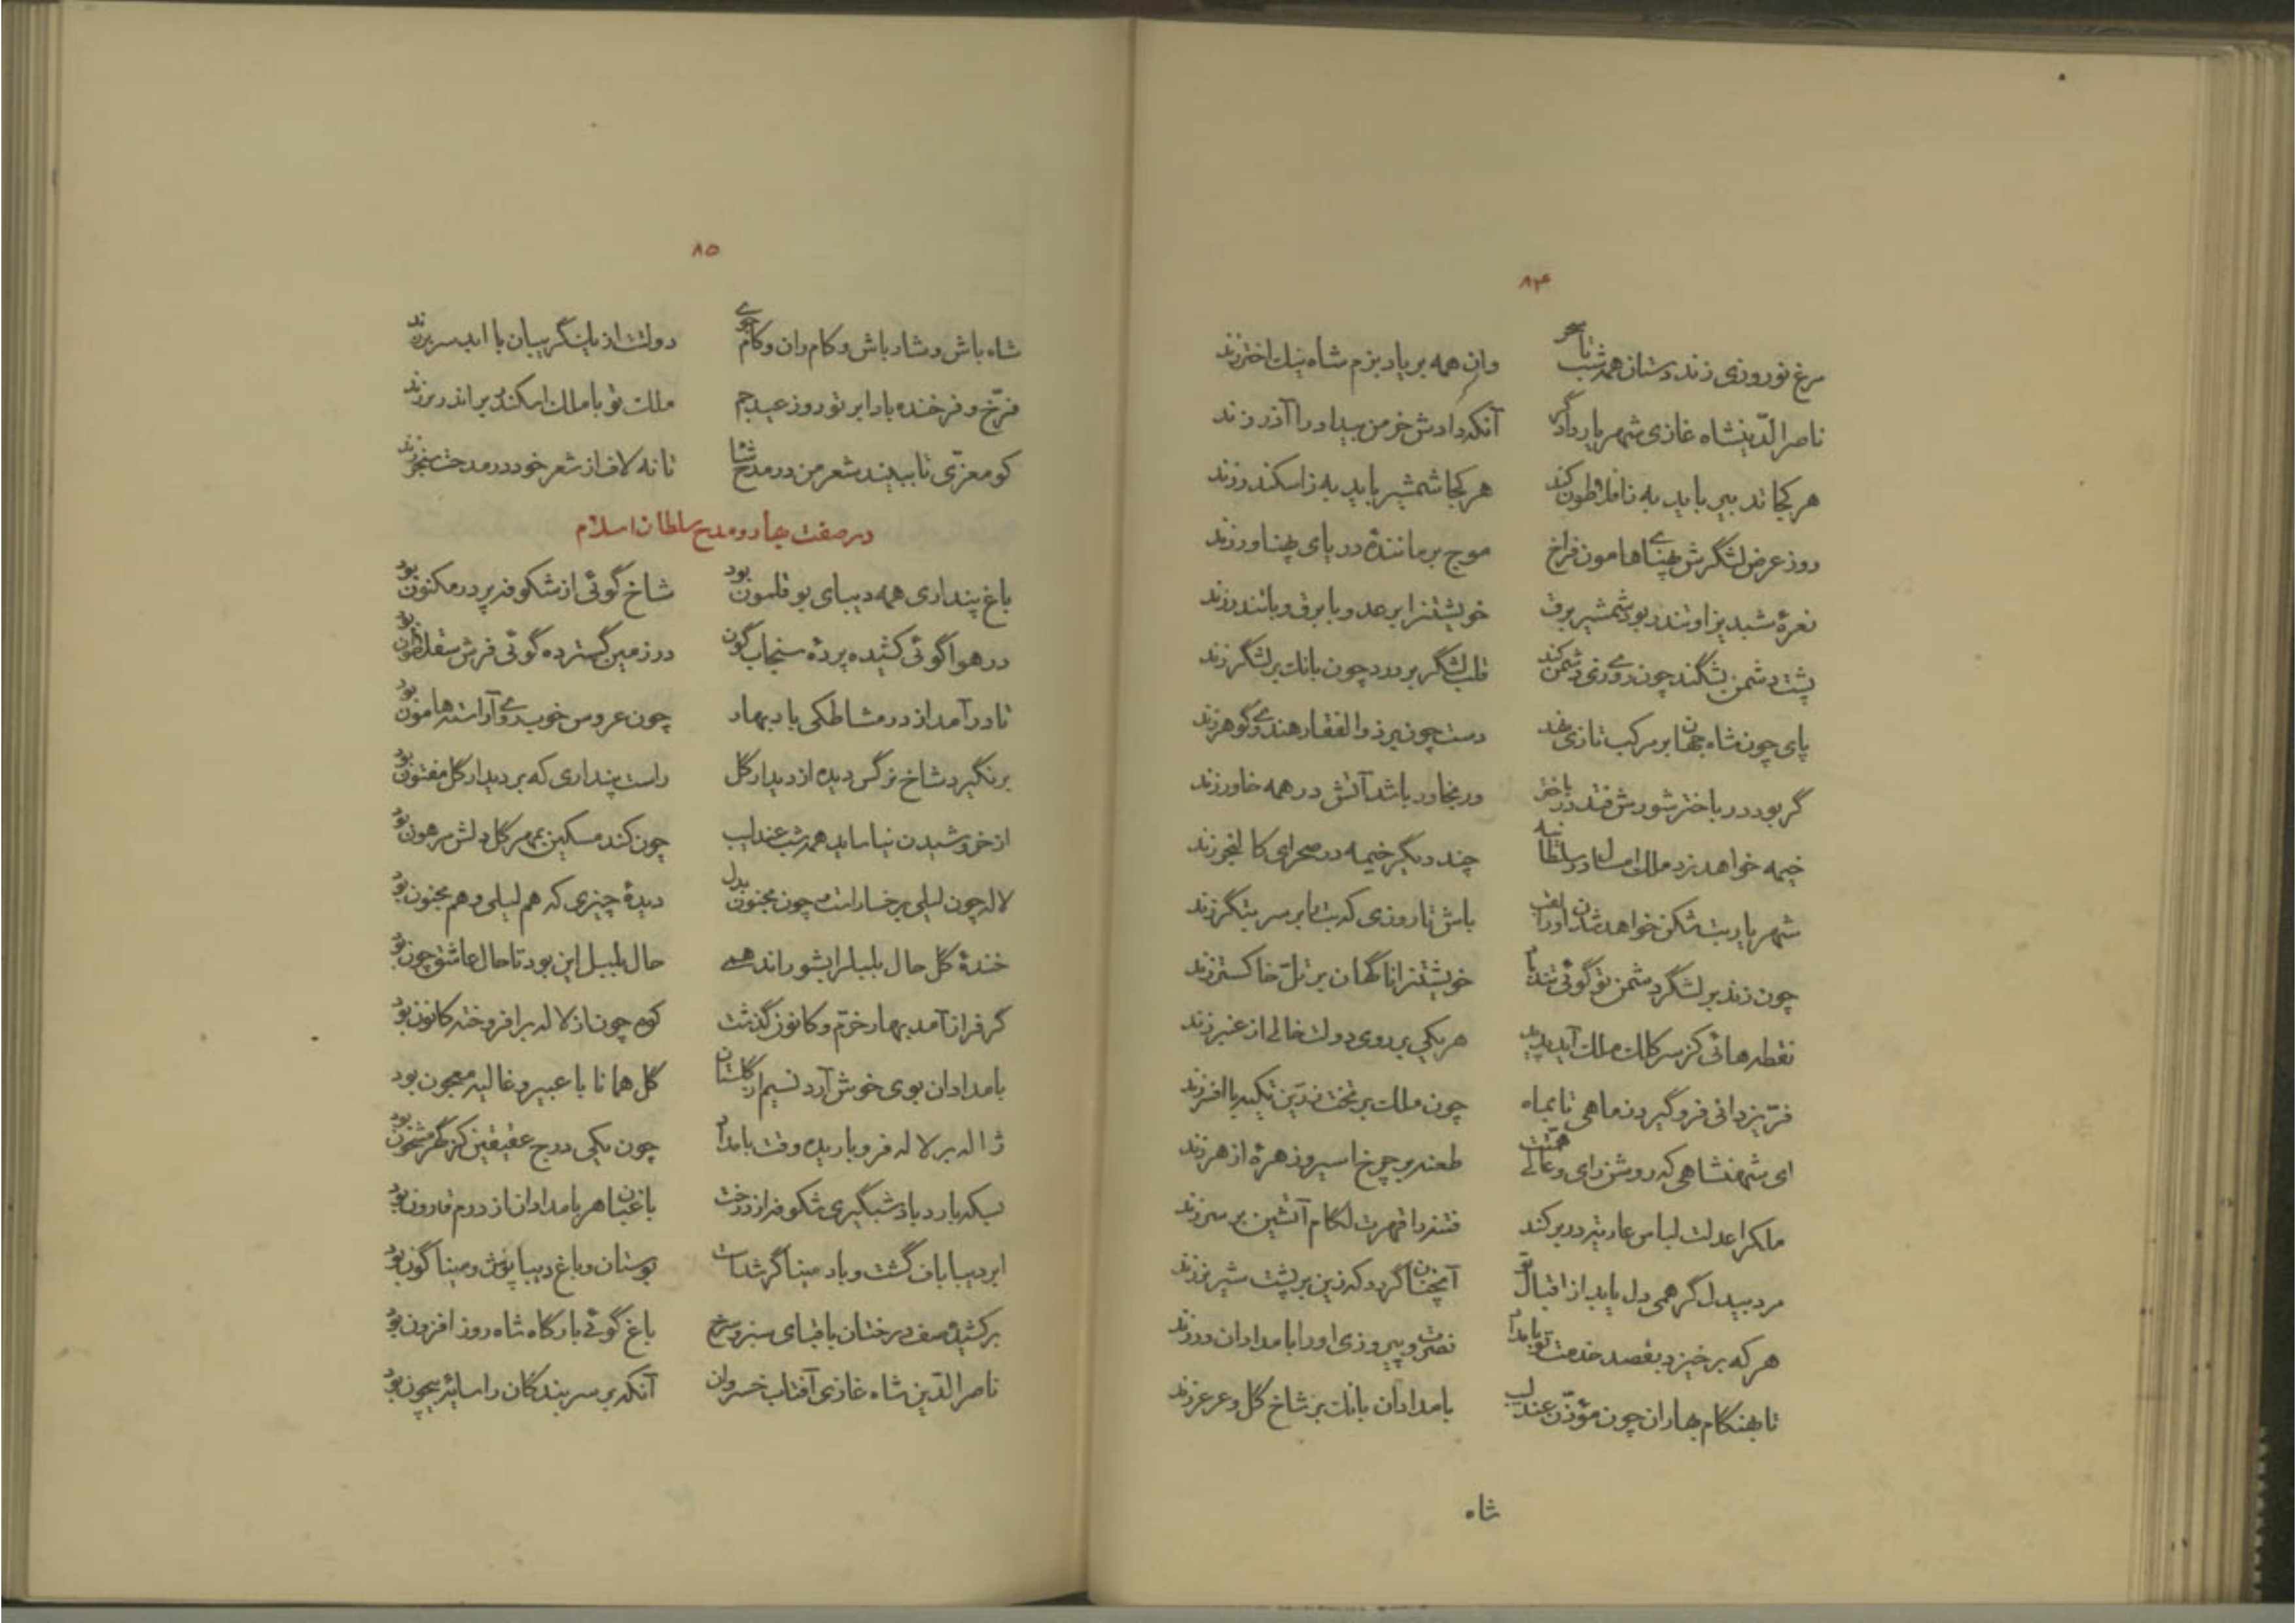 ۸۴
مرغ نوروزی زند دستان همه شب تا سحر    وان همه بر یاد بزم شاه نیک اختر زند
ناصرالدینشاه غازی شهریار دادگر    آنکه دادش خرمن بیداد را آذر زند
هر کجا تدبیر باید به ز افلاطون کند    هر کجا شمشیر باید به ز اسکندر زند
روز عرض لشگرش پهنای هامون فراخ    موج بر مانندهٔ دریای پهناور زند
نعرهٔ شبدیز او تندر بود شمشیر برق    خویشتن را بر عدو با برق و با تندر زند
پشت دشمن بشکند چون روی زی دشمن کند    قلب لشگر بر درد چون بانک بر لشگر زند
پای چون شاه جهان بر مرکب تازی نهد    دست چون بر ذوالفقار هندوی گوهر زند
گر بود در باختر شورش فتد در باختر    ور بخاور باشد آتش در همه خاور زند
خیمه خواهد زد ملک امسال در سلطانیه    چند دیگر خیمه در صحرای کالنجر زند
شهریار بت شکن خواهد شدن او را لقب    باش تا روزی که بت را بر سر بتگر زند
چون زند بر لشگر دشمن تو گوئی تندباد    خویشتن را ناگهان بر تل خاکستر زند
نقطه هائی کز سر کلک ملک آید پدید    هر یکی بر روی دولت خالی از عنبر زند
فر یزدانی فرو گیرد ز ماهی تا بماه    چون ملک بر تخت زرین تکیه با افسر زند
ای شهنشاهی که روشن رای و عالی همتت    طعنه بر چرخ اسیر و زهرهٔ ازهر زند
ملک را عدلت لباس عاریت در بر کند    فتنه را قهرت لگام آتشین بر سر زند
مرد بیدل گر همی دل یابد از اقبال تو    آنچنان گردد که زین بر پشت شیر نر زند
هر که برخیزد بقصد خدمت تو بامداد    نصرت و پیروزی او را بامدادان در زند
تا بهنگام بهاران چون مؤذن عندلیب    بامدادان بانک بر شاخ گل و عرعر زند
شاه
۸۵
شاه باش و شاد باش و کام ران و کام جوی    دولت از یک گریبان با ابد سر بر زند
فرخ و فرخنده بادا بر تو روز عید جم    ملک تو با ملک اسکندر برابر در زند
کو معزی تا ببیند شعر من در مدح شا    تا نه لاف از شعر خود در مدحت سنجر زند
در صفت بهار و مدح سلطان اسلام
باغ پنداری همه دیبای بوقلمون بود    شاخ گوئی از شکوفه پر در مکنون بود
در هوا گوئی کشیده پردهٔ سنجاب گون    در زمین گسترده گوئی فرش سقلاطون بود
تا در آمد از در مشاطکی باد بهار    چون عروس خوب روی آراسته هامون بود
برنگیرد شاخ نرگس دیده از دیدار گل    راست پنداری که بر دیدار گل مفتون بود
از خروشیدن نیاساید همه شب عندلیب    چون کند مسکین بمهر گل دلش مرهون بود
لاله چون لیلی برخسار است و چون مجنون بدل    دیدهٔ چیزی که هم لیلی و هم مجنون بود
خندهٔ گل حال بلبل را بشوراند همی    حال بلبل این بود تا حال عاشق چون بود
گر فراز آمد بهار خرم و کانون گذشت    کوه چون از لاله بر افروخته کانون بود
بامدادان بوی خوش آرد نسیم از گلستان    گل همانا با عبیر و غالیه معجون بود
ژاله بر لاله فرو باریده وقت بامداد    چون یکی درج عقیقین کز گهر مشحون بود
بسکه بارد باد شبگیری شکوفه از درخت    باغبان هر بامدادان از درم قارون بود
ابر دیبا باف گشت و باد مینا گر شدست    بوستان و باغ دیبا پوش و مینا گون بود
برکشیده صف درختان با قبای سبز و سرخ    باغ گوئی بارگاه شاه روز افزون بود
ناصرالدین شاه غازی آفتاب خسروان    آنکه بر سر بندگان را سایهٔ بیچون بود